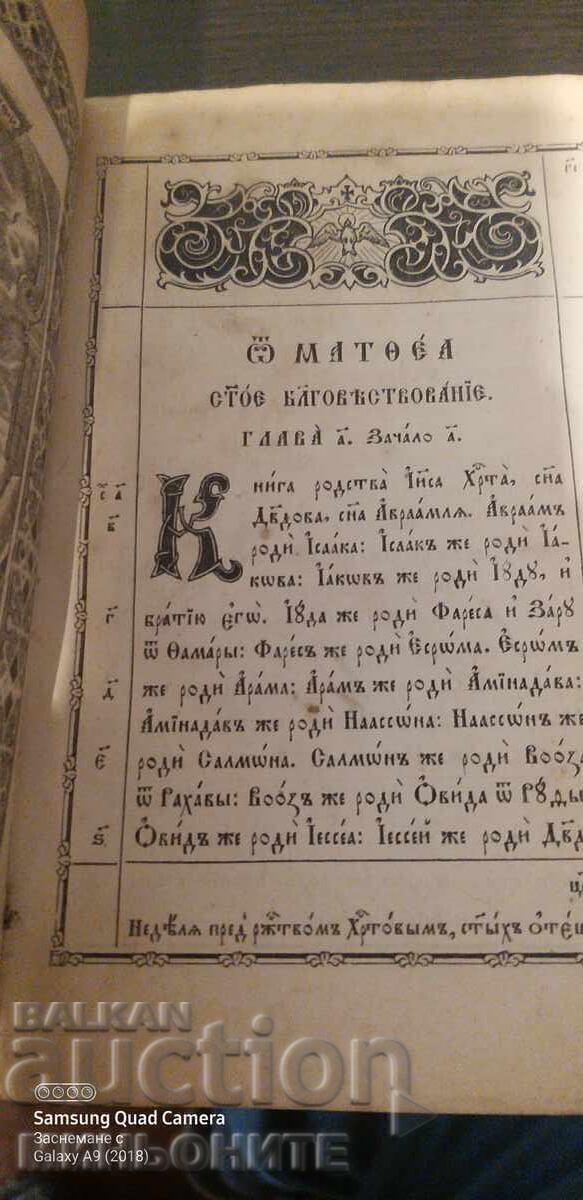 Ѿ МАТѲЕ́А
СТ҃ОЕ БЛ҃ГОВѢСТВОВА́НІЕ.
ГЛАВА̀ а҃. Зача́ло а҃.
Кни́га родства̀ І҆и҃са Хрⷭ҇та̀, сн҃а
Дв҃дова, сн҃а А҆враа́мля. А҆враа́мъ
родѝ І҆саа́ка: І҆саа́къ же родѝ І҆а́-
кѡва: І҆а́кѡвъ же родѝ І҆ꙋ́дꙋ, и҆
бра́тїю є҆гѡ̀. І҆ꙋ́да же родѝ Фаре́са и҆ За́рꙋ
ѿ Ѳама́ры: Фаре́съ же родѝ Є҆срѡ́ма. Є҆срѡ́мъ
же родѝ А҆ра́ма: А҆ра́мъ же родѝ А҆мїнада́ва:
А҆мїнада́въ же родѝ Наассѡ́на: Наассѡ́нъ же
родѝ Салмѡ́на. Салмѡ́нъ же родѝ Воо́за
ѿ Раха́вы: Воо́зъ же родѝ Ѻ҆ви́да ѿ Рꙋ́ды
Ѻ҆ви́дъ же родѝ І҆ессе́а: І҆ессе́й же родѝ Дв҃д
в҃
г҃
д҃
є҃
ѕ҃
Недѣ́ля пред̾ ржⷭ҇тво́мъ Хрⷭ҇то́вымъ, ст҃ы́хъ ѻ҆те́ц
BALKAN
auction
МИЛЬОНИТЕ
Samsung Quad Camera
Заснемане с
Galaxy A9 (2018)